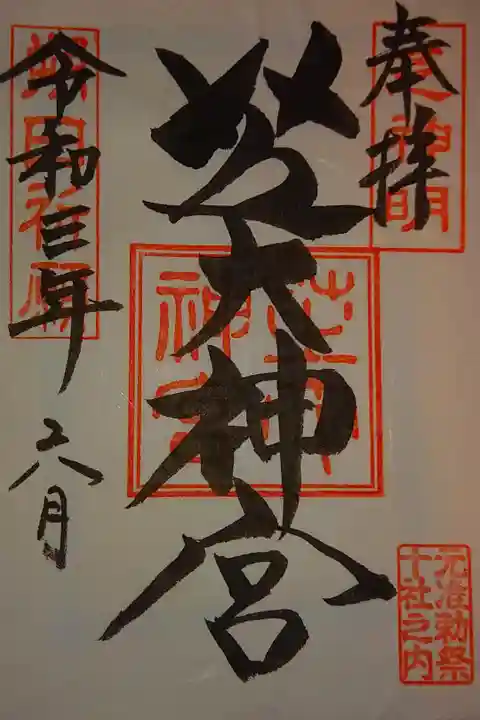 奉拝
芝大神宮
令和三年
六月
元准勅祭
十社之内